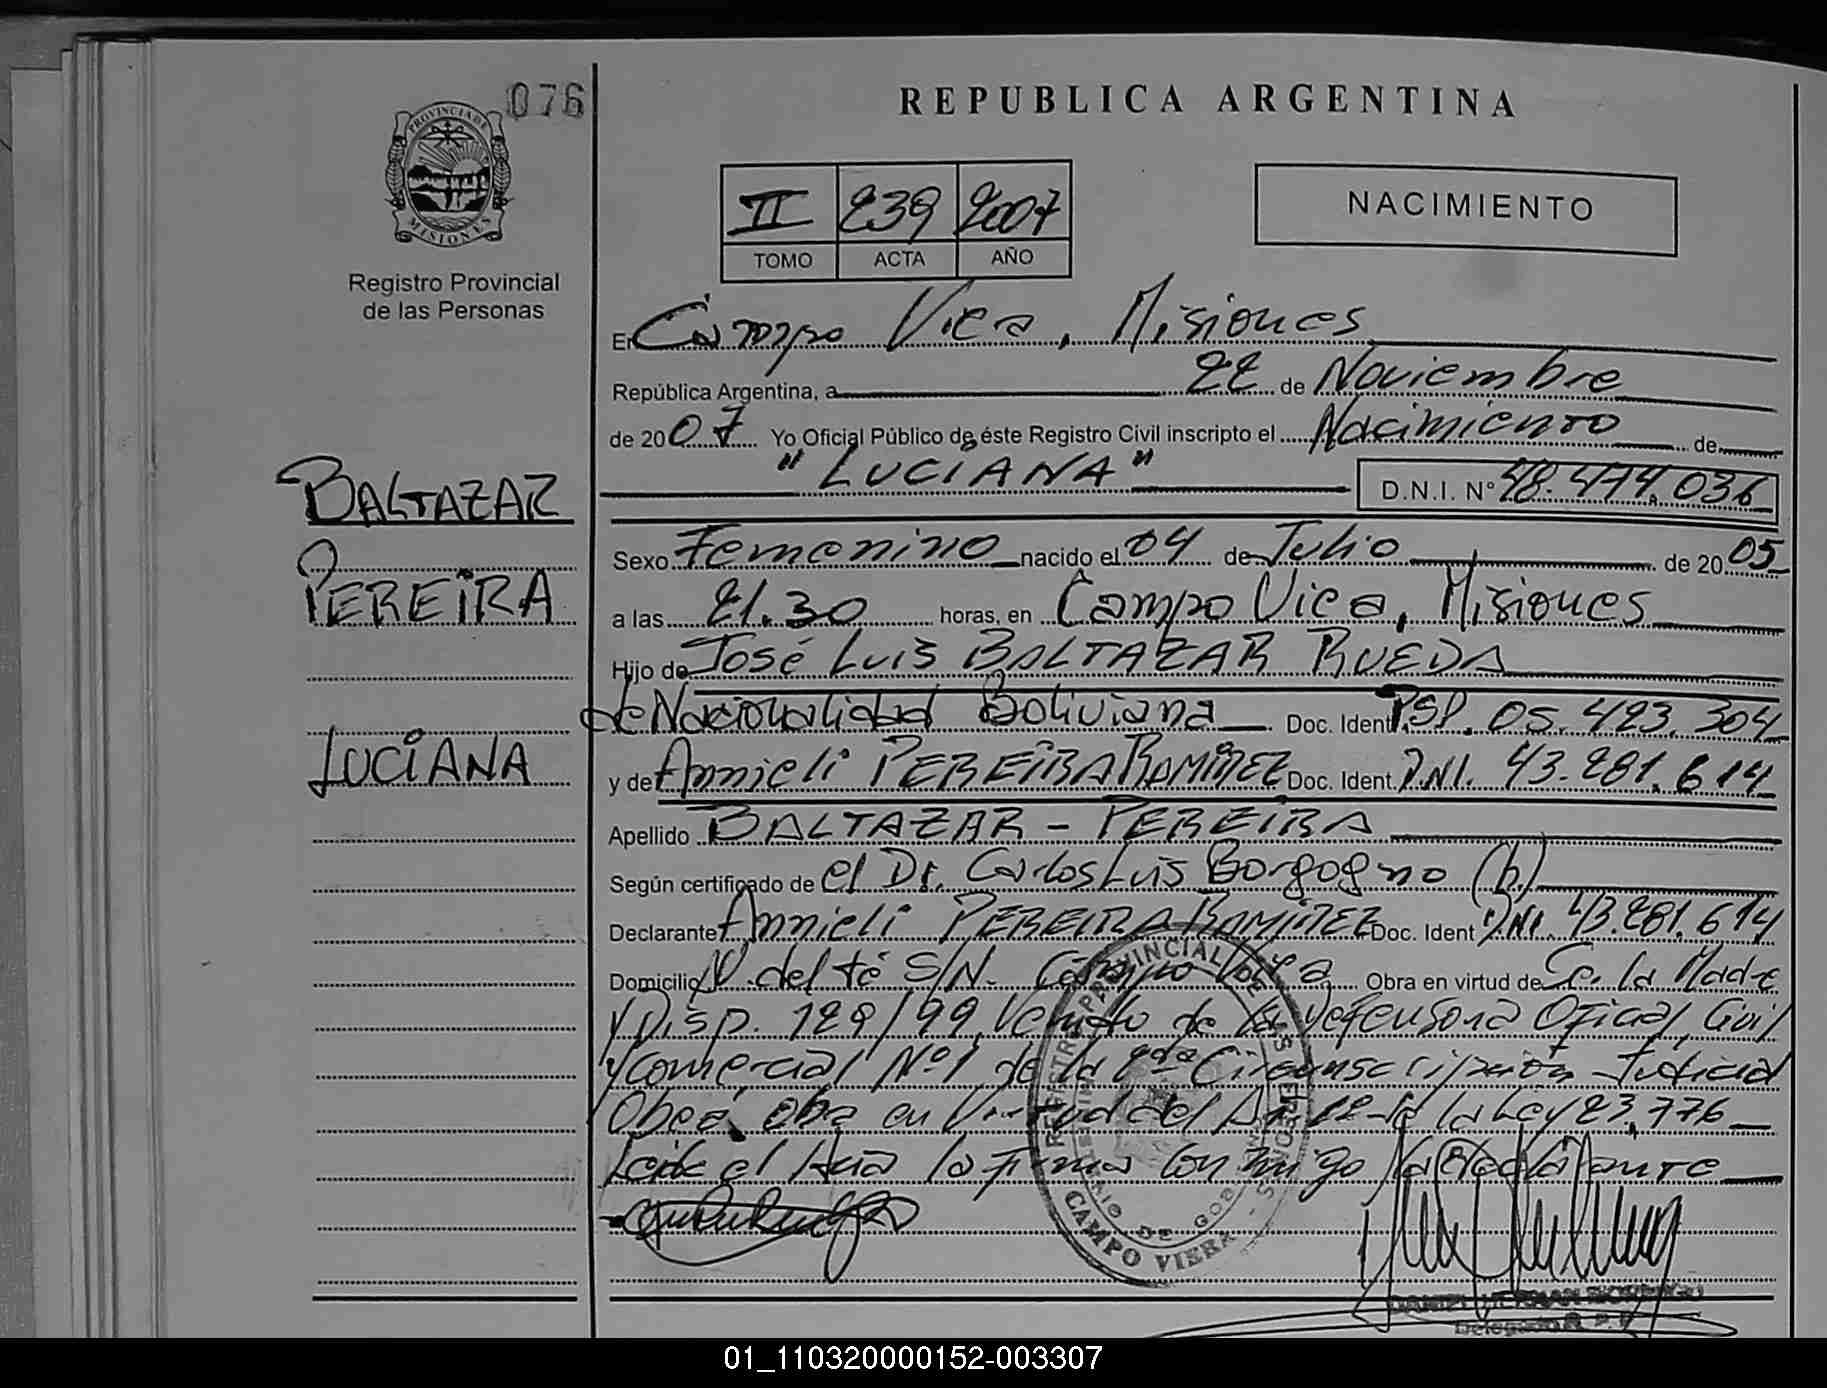 076
PROVINCIA DE
MISIONES
Registro Provincial
de las Personas
BALTAZAR
PEREIRA
LUCIANA
REPUBLICA ARGENTINA
II 239 2007
TOMO ACTA AÑO
NACIMIENTO
En Campo Viera, Misiones
República Argentina, a 22 de Noviembre
de 2007 Yo Oficial Público de éste Registro Civil inscripto el Nacimiento de
"LUCIANA" D.N.I. N° 48.474.036
Sexo Femenino nacido el 04 de Julio de 2005
a las 21.30 horas, en Campo Viera, Misiones
Hijo de José Luis BALTAZAR RUEDA
de Nacionalidad Boliviana Doc. Ident. PSP. 05.423.304
y de Annieli PEREIRA RAMIREZ Doc. Ident. D.N.I. 43.281.614
Apellido BALTAZAR - PEREIRA
Según certificado de el Dr. Carlos Luis Borgogno (h.)
Declarante Annieli PEREIRA RAMIREZ Doc. Ident DNI. 43.281.614
Domicilio del té S/N. Campo Viera Obra en virtud de la Madre
y Disp. 129/99 de la Defensora Oficial Civil
y Comercial Nº1 de la 2da Circunscripción Judicial
Oberá, obra en Virtud del de la Ley 23.776
el Acta la Firma Conmigo la declarante
REGISTRO PROVINCIAL DE LAS PERSONAS
MINISTERIO DE GOBIERNO
CAMPO VIERA
DANIEL HERNAN
Delegado R. P. P.
01_110320000152-003307